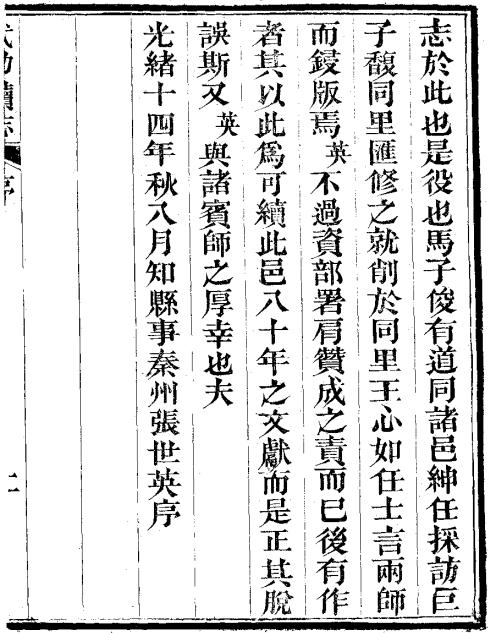 志於此也是役也馬子俊有道同諸邑紳任採訪巨
子馥同里匯修之就削於同里王心如任士言兩師
而鋟版焉英不過資部署肩贊成之責而已後有作
者其以此為可續此邑八十年之文獻而是正其脫
誤斯又英與諸賓師之厚幸也夫
光緒十四年秋八月知縣事秦州張世英序
武功續志
序